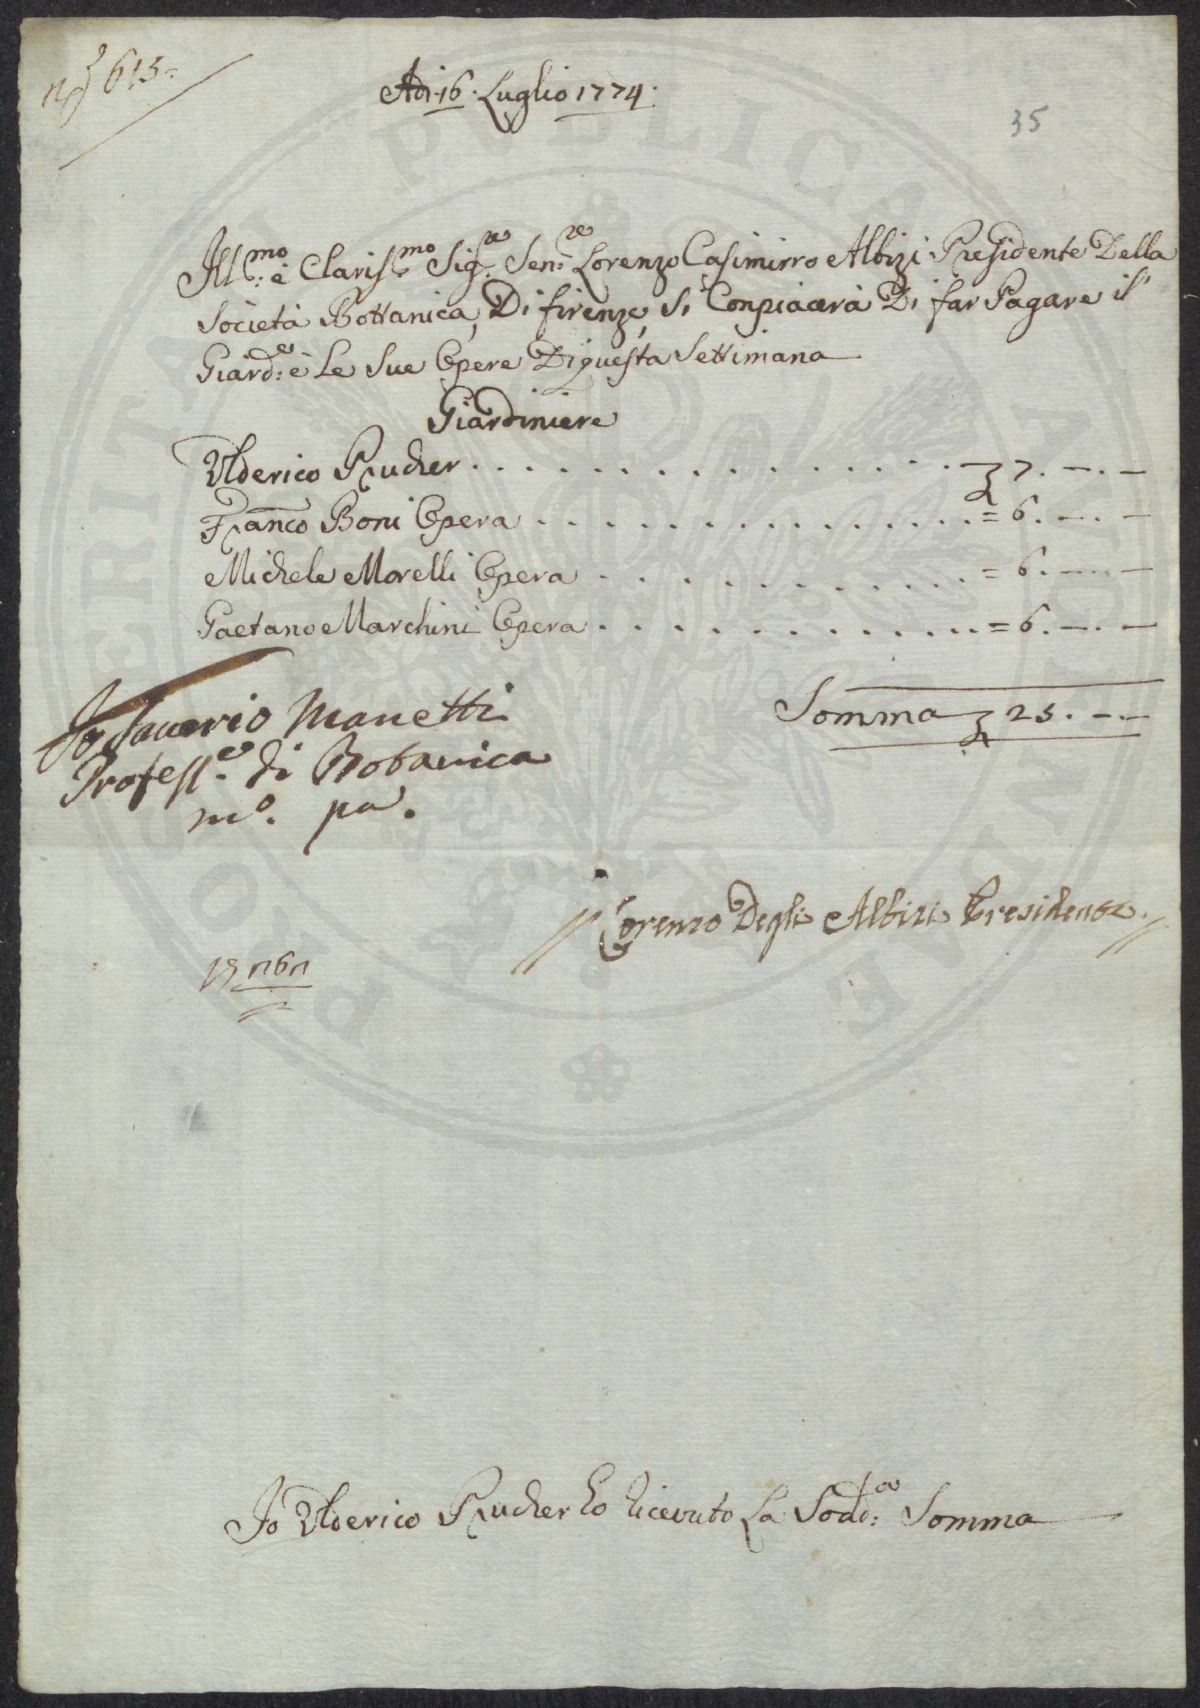 nº 615.
Adi 16. Luglio 1774.
35
Ill:mo e Claris:mo Sig:re Sen:re Lorenzo Casimirro Albizi Presidente Della
Società Bottanica, Di firenze, Si Conpiacerà Di far Pagare il
Giard:e è Le Sue Opere Di questa Settimana
Giardiniere
Ulderico Prucher . . . . . . . . . . . . . . . 7. —. —
Franco Boni Opera . . . . . . . . . . . . . . . = 6. —. —
Michele Morelli Opera . . . . . . . . . . . . = 6. —. —
Gaetano Marchini Opera . . . . . . . . . . . . = 6. —. —
Somma 25. —. —
Io Saverio Manetti
Profess:e di Botanica
mo. pa.
// Lorenzo Degli Albizi Presidente. //
Io Ulderico Prucher ho ricevuto La Sodd:a Somma